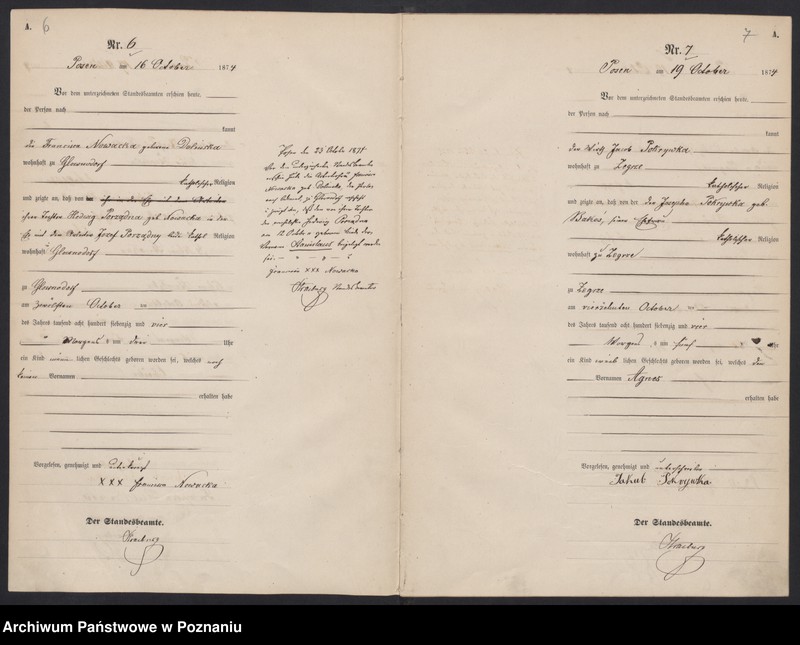 A.
6
Nr. 6
Posen am 16 October 1874
Vor dem unterzeichneten Standesbeamten erschien heute,
der Person nach
kannt
die Francisca Nowacka geborene
wohnhaft zu Glownodorf
katholischer Religion
und zeigte an, daß von
ihrer Tochter Hedwig Porządna geb. Nowacka in der
Josef Porządny Religion
wohnhaft Glownodorf
zu Glownodorf
am zwölften October
des Jahres tausend acht hundert siebenzig und vier
Morgens um drei Uhr
ein Kind männlichen Geschlechts geboren worden sei, welches noch
keinen Vornamen
erhalten habe
Vorgelesen, genehmigt und
XXX Francisca Nowacka
Der Standesbeamte.
Posen den 23 October 1874
Vor dem unterzeichneten Standesbeamten
Nowacka geb.
Hedwig Porządna
am 12 October geborene Kinde der
Vorname Stanislaus beigelegt worden
sei.
Francisca XXX Nowacka
Standesbeamter
7
A.
Nr. 7
Posen am 19 October 1874
Vor dem unterzeichneten Standesbeamten erschien heute,
der Person nach
kannt
der Wirth Jacob Pokrywka
wohnhaft zu Zegrze
katholischer Religion
und zeigte an, daß von der Josepha Pokrywka geb.
seiner Ehefrau
katholischer Religion
wohnhaft zu Zegrze
zu Zegrze
am vierzehnten October
des Jahres tausend acht hundert siebenzig und vier
Morgens um fünf Uhr
ein Kind weiblichen Geschlechts geboren worden sei, welches den
Vornamen Agnes
erhalten habe
Vorgelesen, genehmigt und unterschrieben
Jakub Pokrywka
Der Standesbeamte.
Archiwum Państwowe w Poznaniu